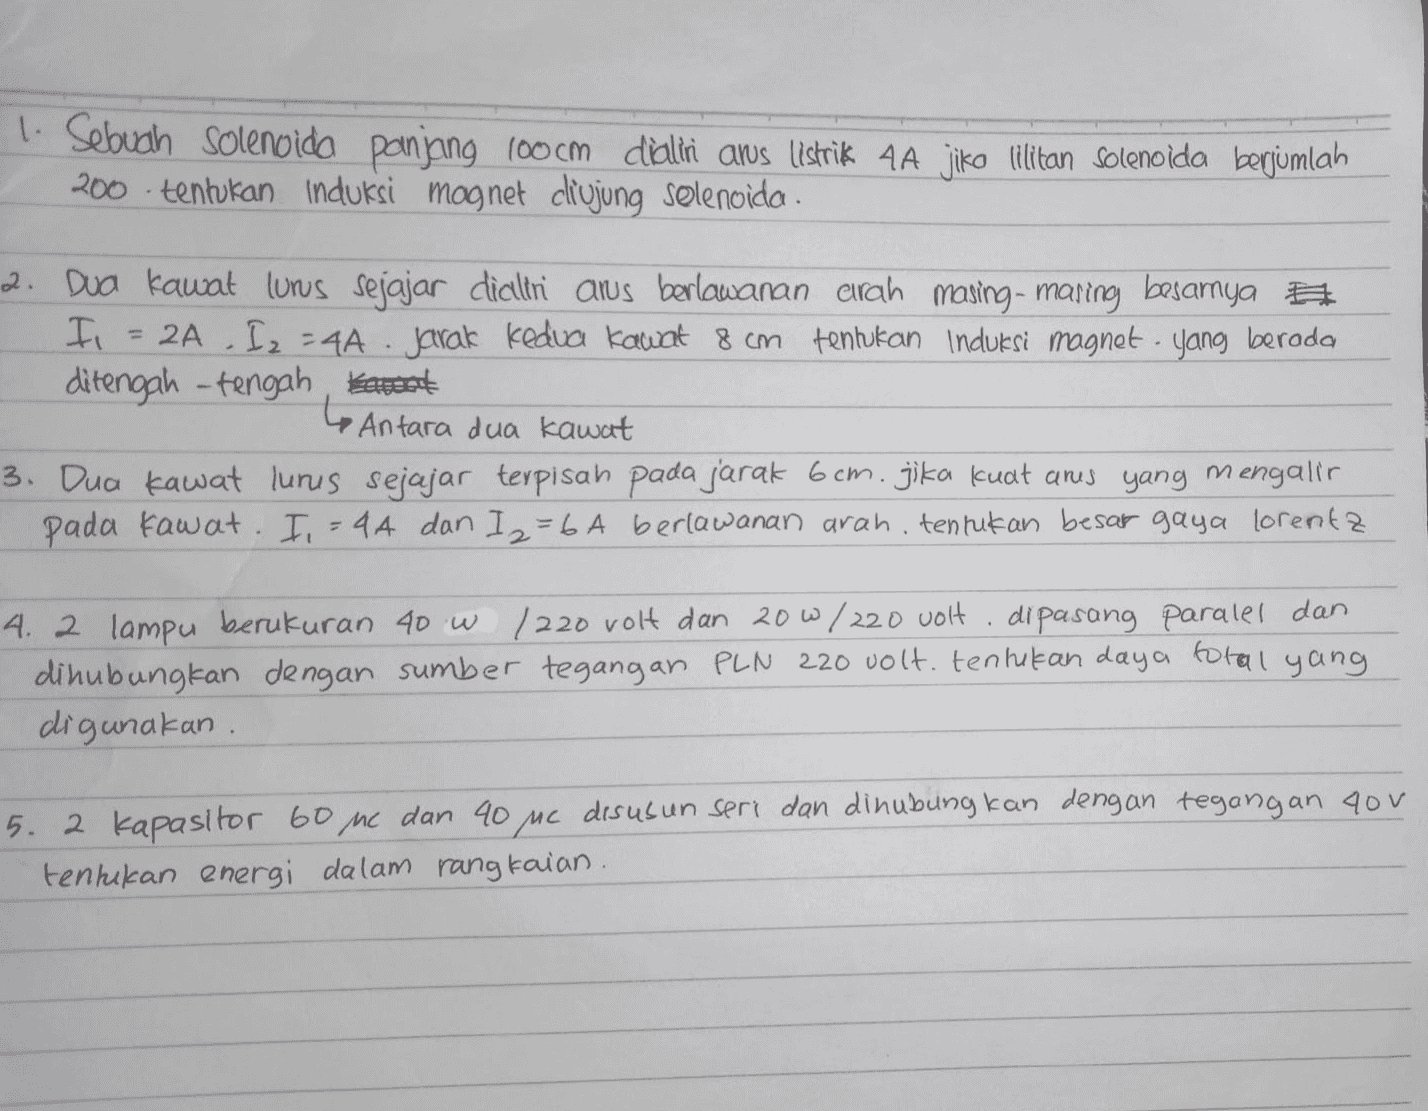 1. Sebuah Solenoida panjang 100cm dialiri arus listrik 4A jika lilitan solenoida berjumlah
200. tentukan Induksi magnet diujung solenoida.
2. Dua kawat lurus sejajar dialiri arus berlawanan arah masing-masing besarnya
I₁ = 2A, I₂ = 4A. jarak kedua kawat 8 cm tentukan Induksi magnet. yang berada
ditengah-tengah
↳ Antara dua kawat
3. Dua kawat lurus sejajar terpisah pada jarak 6cm. jika kuat arus yang mengalir
pada kawat. I₁ = 4A dan I₂ = 6A berlawanan arah. tentukan besar gaya lorentz
4. 2 lampu berukuran 40 w /220 volt dan 20 w/220 volt. dipasang paralel dan
dihubungkan dengan sumber tegangan PLN 220 volt. tentukan daya total yang
digunakan.
5. 2 kapasitor 60 μc dan 40 μc disusun seri dan dihubungkan dengan tegangan 40 v
tentukan energi dalam rangkaian.